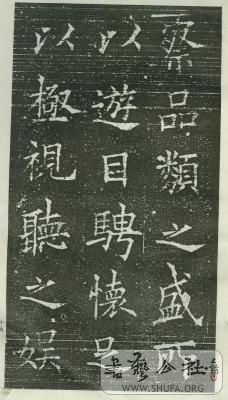 察品類之盛所
以遊目騁懷足
以極視聽之娱
書艺公社
WWW.SHUFA.ORG